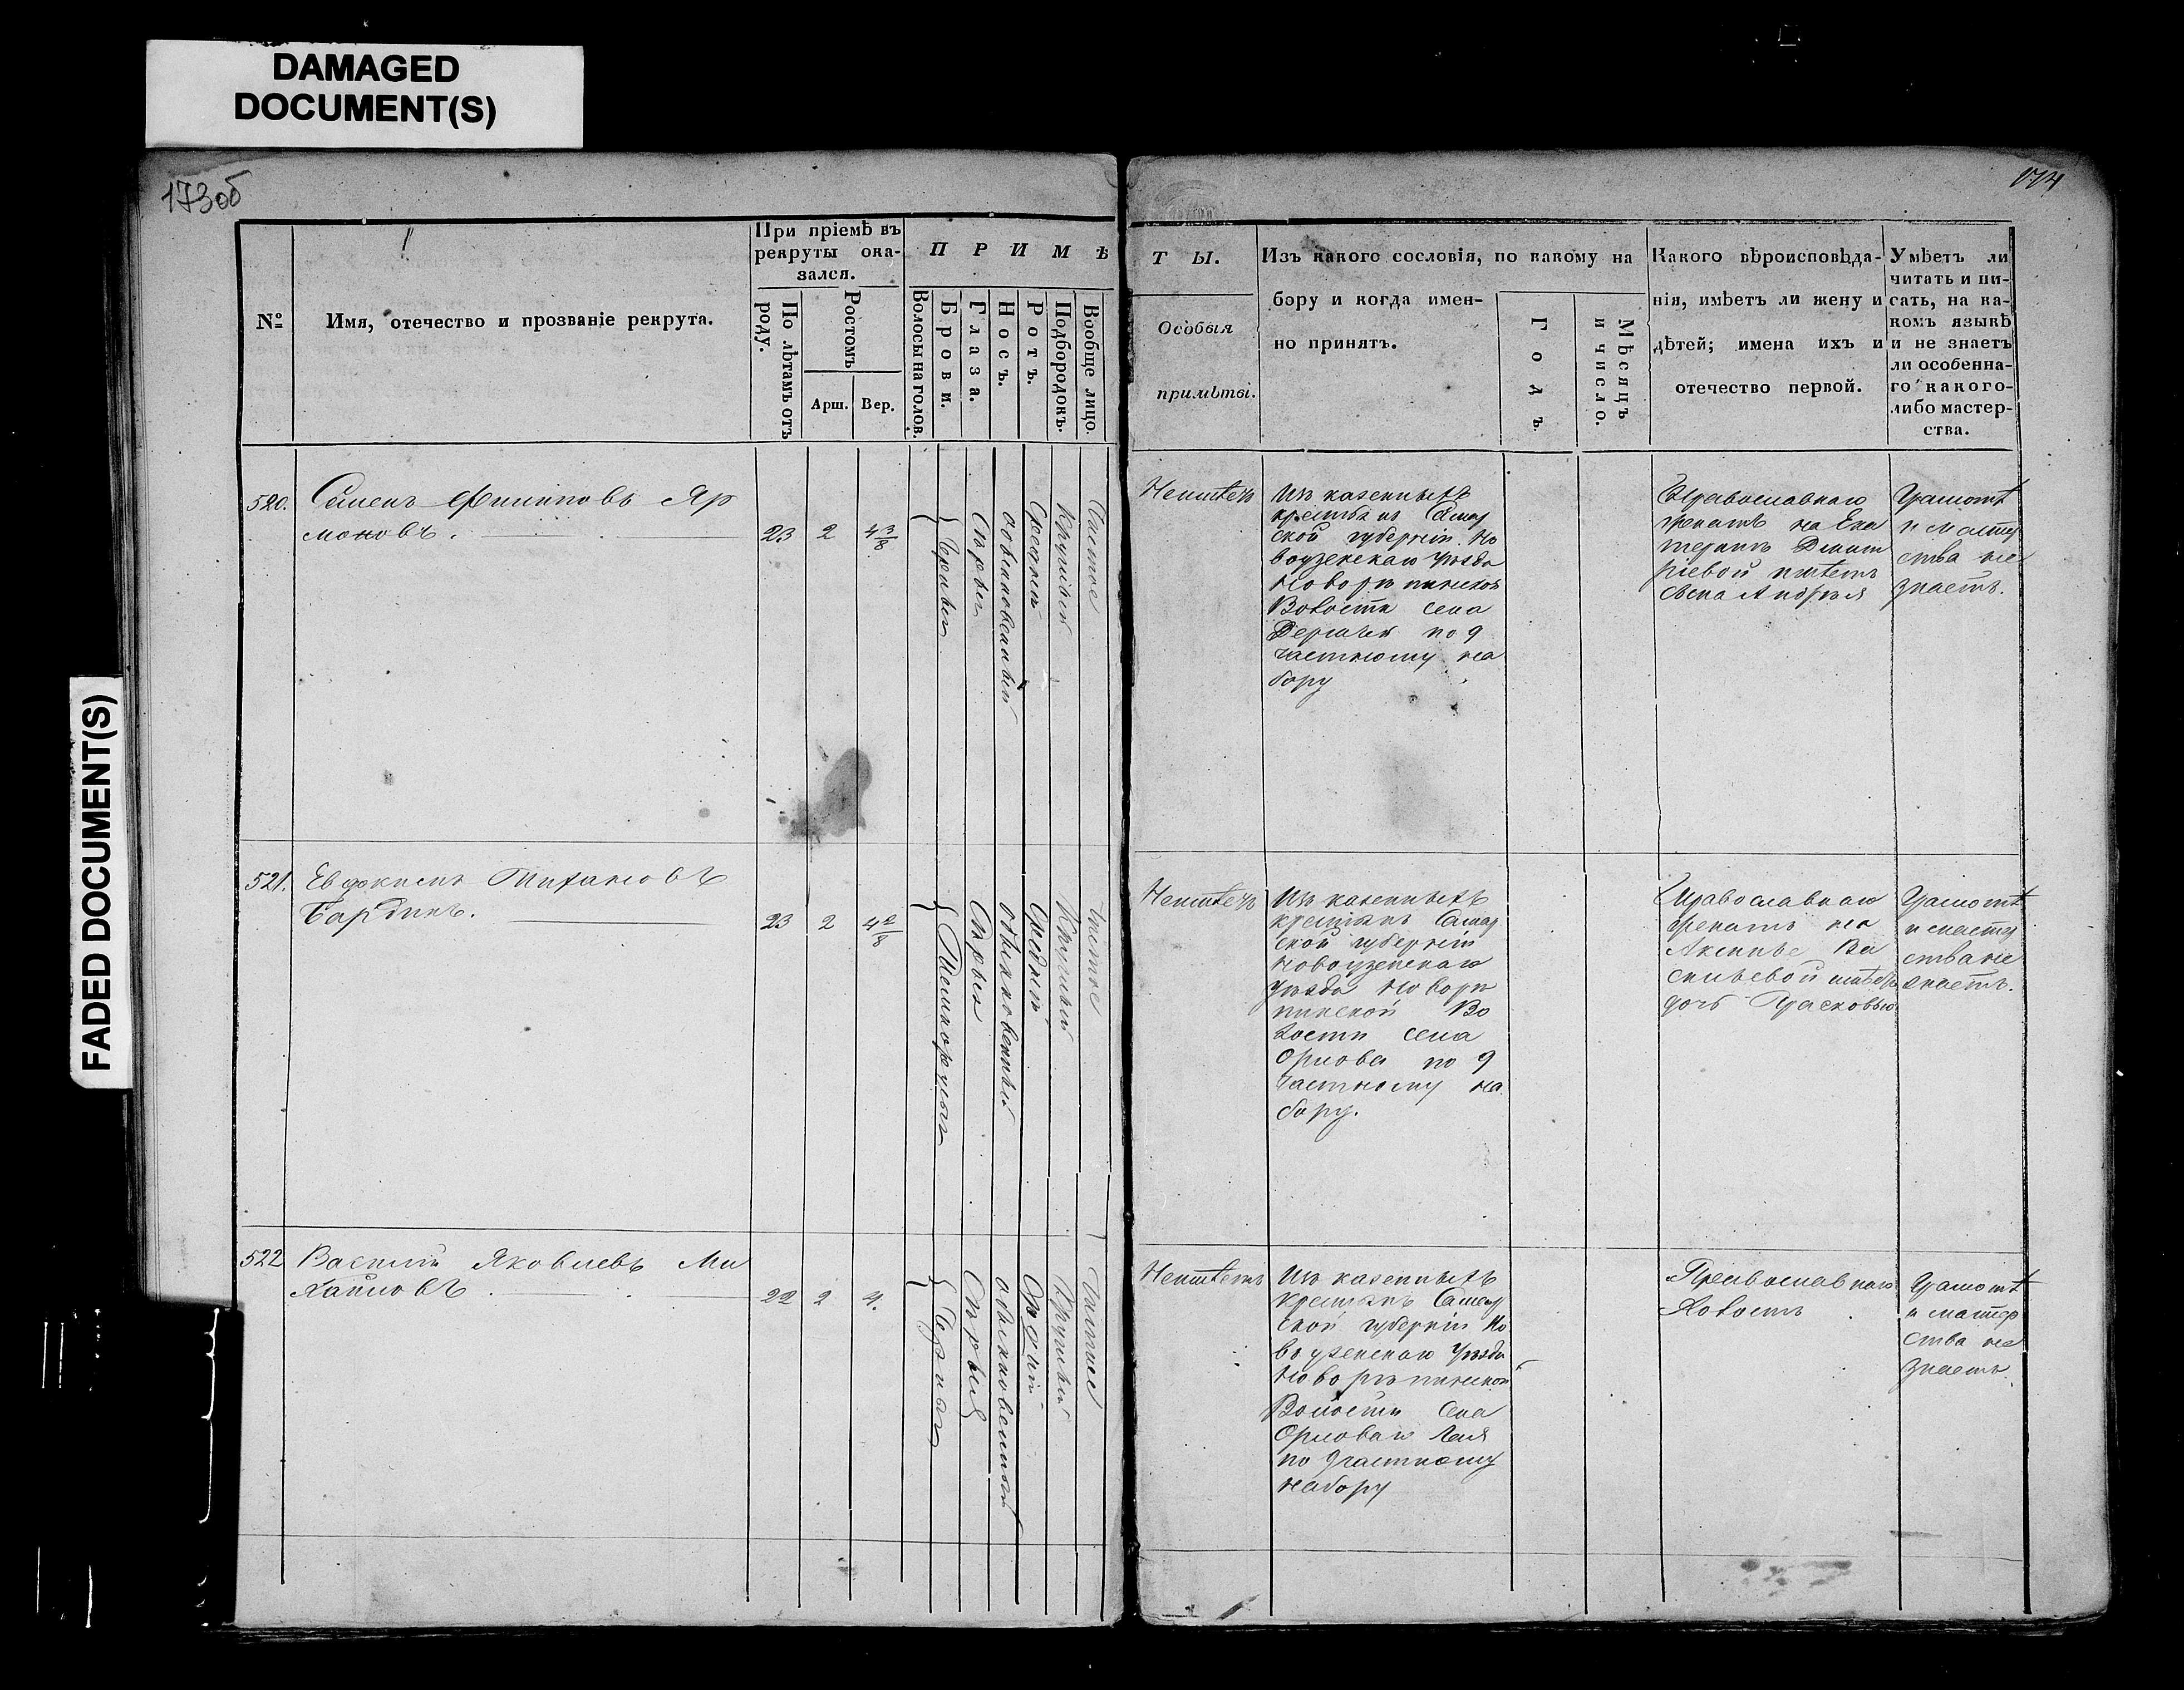 DAMAGED
DOCUMENT(S)
FADED DOCUMENT(S)
173об
174
№
Имя, отечество и прозваніе рекрута.
При пріемѣ въ
рекруты ока-
зался.
По лѣтамъ отъ
роду.
Ростомъ
Арш.
Вер.
П Р И М Ѣ
Волосы на голов.
Брови.
Глаза.
Носъ.
Ротъ.
Подбородокъ.
Вообще лицо.
Т Ы.
Особыя
примѣты.
Изъ какого сословія, по какому на
бору и когда имен-
но принятъ.
Годъ.
Мѣсяцъ
и число.
Какого вѣроисповѣда-
нія, имѣетъ ли жену и
дѣтей; имена ихъ и
отечество первой.
Умѣетъ ли
читать и пи-
сать, на ка-
комъ языкѣ
и не знаетъ
ли особенна-
го какого-
либо мастер-
ства.
520.
Семенъ Филиповъ Яр
моновъ.
23
2
4 3/8
Черныя
Сѣрыя
обыкновенный
Средній
Круглый
Чистое
Неимѣетъ
Изъ казенныхъ
крестьянъ Самар
ской губерніи Но
воузенскаго Уѣзда
Новорѣпинской
Волости села
Дергачей по 9
частному на
бору
Православнаго
женатъ на Ека
теринѣ Дмит
ріевой имѣетъ
сына Андрея
Грамотѣ
и мастер
ства не
знаетъ.
521.
Евдокимъ Тихановъ
Бардинъ.
23
2
4 2/8
Темнорусыя
Сѣрыя
обыкновенный
Средній
Круглый
Чистое
Неимѣетъ
Изъ казенныхъ
крестьянъ Самар
ской губерніи
Новоузенскаго
Уѣзда Новорѣ
пинской Во
лости села
Орлова по 9
частному на
бору.
Православнаго
женатъ на
Аксинье Ва
сильевой имѣетъ
дочь Прасковью
Грамотѣ
и мастер
ства не
знаетъ.
522
Василій Яковлевъ Ми
хайловъ
22
2
4.
Черныя
Сѣрыя
обыкновенный
Средній
Круглый
Чистое
Неимѣетъ
Изъ казенныхъ
крестьянъ Самар
ской губерніи Но
воузенскаго Уѣзда
Новорѣпинской
Волости Села
Орловаго Гая
по 9 частному
набору
Православнаго
Холостъ
Грамотѣ
и мастер
ства не
знаетъ